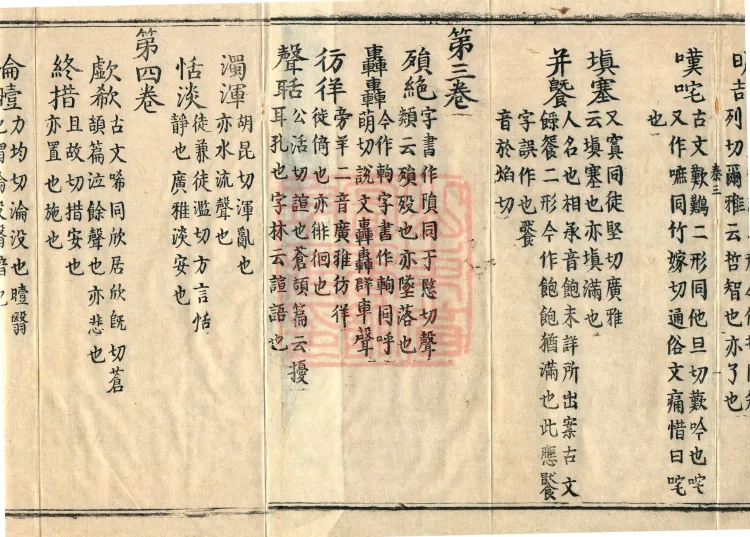 列切爾雅云哲智也亦了也
嘆咤古文歎鷬二形同他旦切歎吟也咤
又作嗻同竹嫁切通俗文痛惜曰咤
也
填塞又窴同徒堅切廣雅
云填塞也亦填滿也
并人名也相承音鮑未詳所出案古文
餘餐二形今作飽飽猶滿也此應饜
字誤作也饜
音於焰切
第三卷
殞絕字書作隕同于愍切聲
類云殞歿也亦墜落也
轟轟今作軥字書作輷同呼
萌切說文轟轟群車聲
彷徉旁羊二音廣雅彷徉
徙倚也亦徘徊也
聲聒公活切諠也蒼頡篇云擾
耳孔也字林云諠語也
濁渾胡昆切渾亂也
亦水流聲也
恬淡徒兼徒濫切方言恬
靜也廣雅淡安也
第四卷
歔欷古文唏同欣居欣旣切蒼
頡篇泣餘聲也亦悲也
終措且故切措安也
亦置也施也
淪曀力均切淪没也曀翳